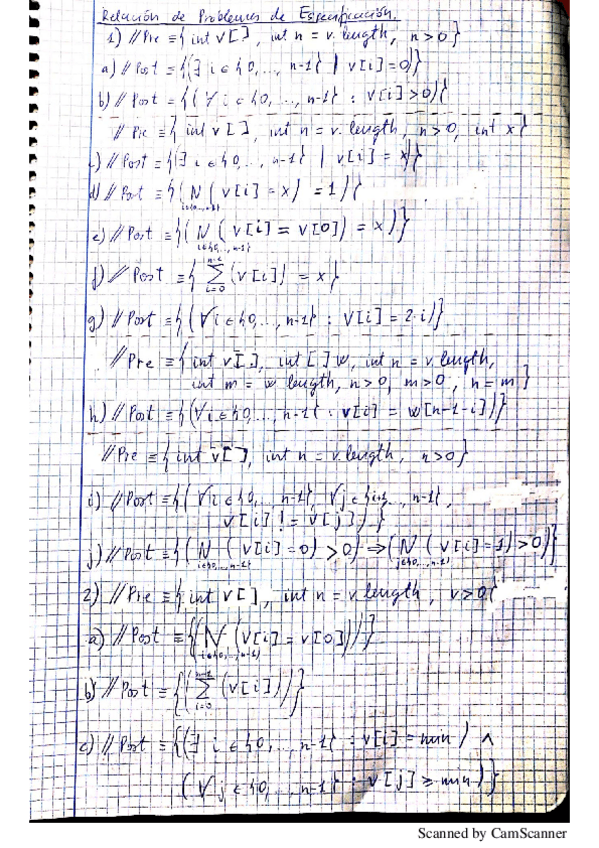 Relación de Problemas de Especificación.
1) //Pre ≡ { int v[], int n = v.length, n>0}
a) //Post ≡ {(∃ i ∈ {0,..., n-1} | v[i]=0)}
b) //Post ≡ {(∀ i ∈ {0,..., n-1} : v[i]>0)}
//Pre ≡ { int v[], int n = v.length, n>0, int x}
c) //Post ≡ {(∃ i ∈ {0,..., n-1} | v[i] = x)}
d) //Post ≡ {( N (v[i] = x) = 1)}
i∈{0,...,n-1}
e) //Post ≡ {( N (v[i] = v[0]) = x)}
i∈{0,...,n-1}
f) //Post ≡ { n-1 Σ i=0 (v[i]) = x}
g) //Post ≡ {(∀i ∈ {0,..., n-1} : v[i] = 2·i)}
//Pre ≡ {int v[], int[] w, int n = v.length,
int m = w length, n>0, m>0, n=m}
h) //Post ≡ {(∀i ∈ {0,..., n-1} : v[i] = w[n-1-i])}
//Pre ≡ {int v[], int n = v.length, n>0}
i) //Post ≡ {(∀i ∈ {0,... n-1}, ∀j ∈ {i+1..., n-1},
v[i] != v[j])}
j) //Post ≡ {( N (v[i]=0) > 0) ⇒ ( N (v[i]=1)>0)}
i∈{0,...,n-1} j∈{0,...,n-1}
2) //Pre ≡ {int v[], int n = v.length, v>0}
a) //Post ≡ {( N (v[i] = v[0]))}
i∈{0,...,n-1}
b) //Post ≡ {( n-1 Σ i=0 (v[i]))}
c) //Post ≡ {(∃ i ∈ {0,..., n-1} : v[i] = min) ∧
(∀j ∈ {0,... n-1} : v[j] ≥ min)}
Scanned by CamScanner